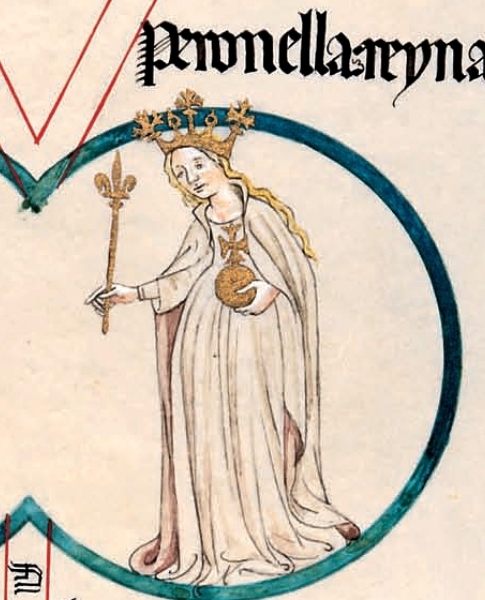 peronella·reyna